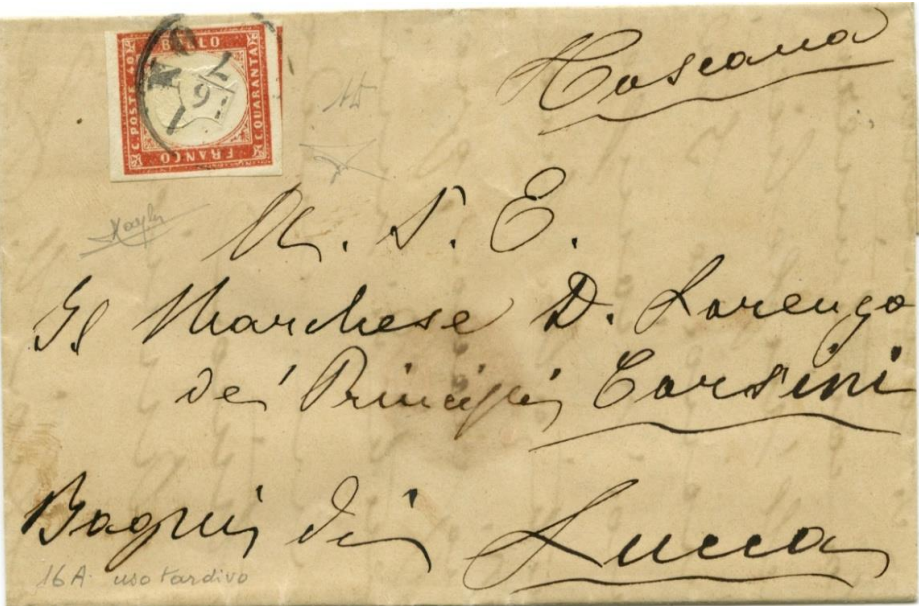 Toscana
C. POSTE 40 BOLLO C. QUARANTA FRANCO
A. S. E.
Il Marchese D. Lorenzo
de' Principi Corsini
Bagni di Lucca
16A uso tardivo